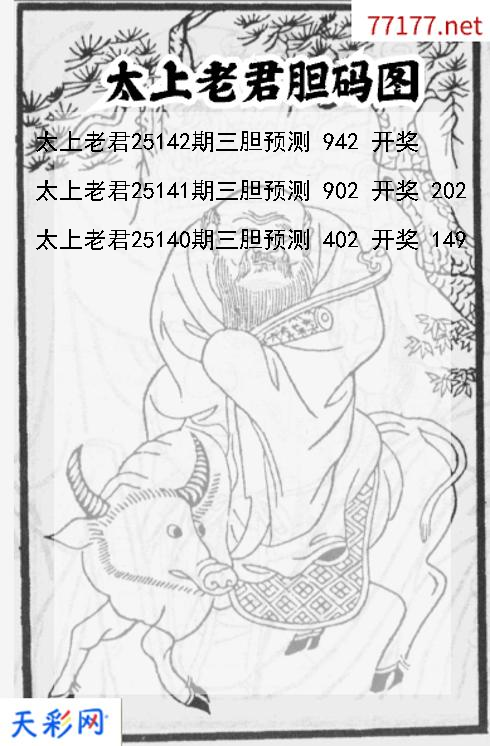 77177.net
太上老君胆码图
太上老君25142期三胆预测 942 开奖
太上老君25141期三胆预测 902 开奖 202
太上老君25140期三胆预测 402 开奖 149
天彩网